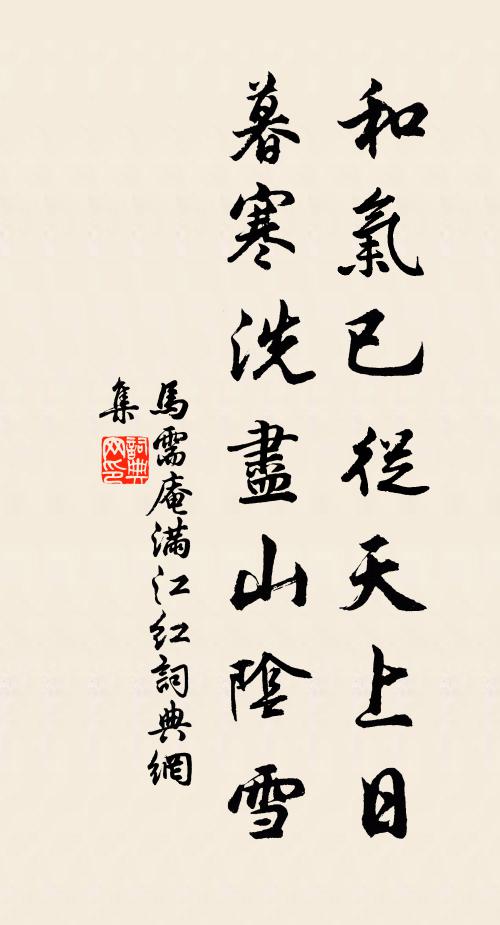 和氣已從天上日
暮寒洗盡山陰雪
馬需庵滿江紅詞典網
集
詞典
网印